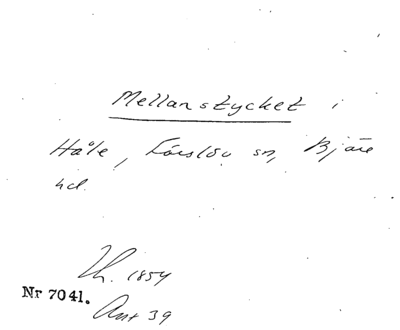 Mellanstycket i
Håle, Förslöv sn, Bjäre
hd.
Lh. 1854
Nr 7041.
Ant 39